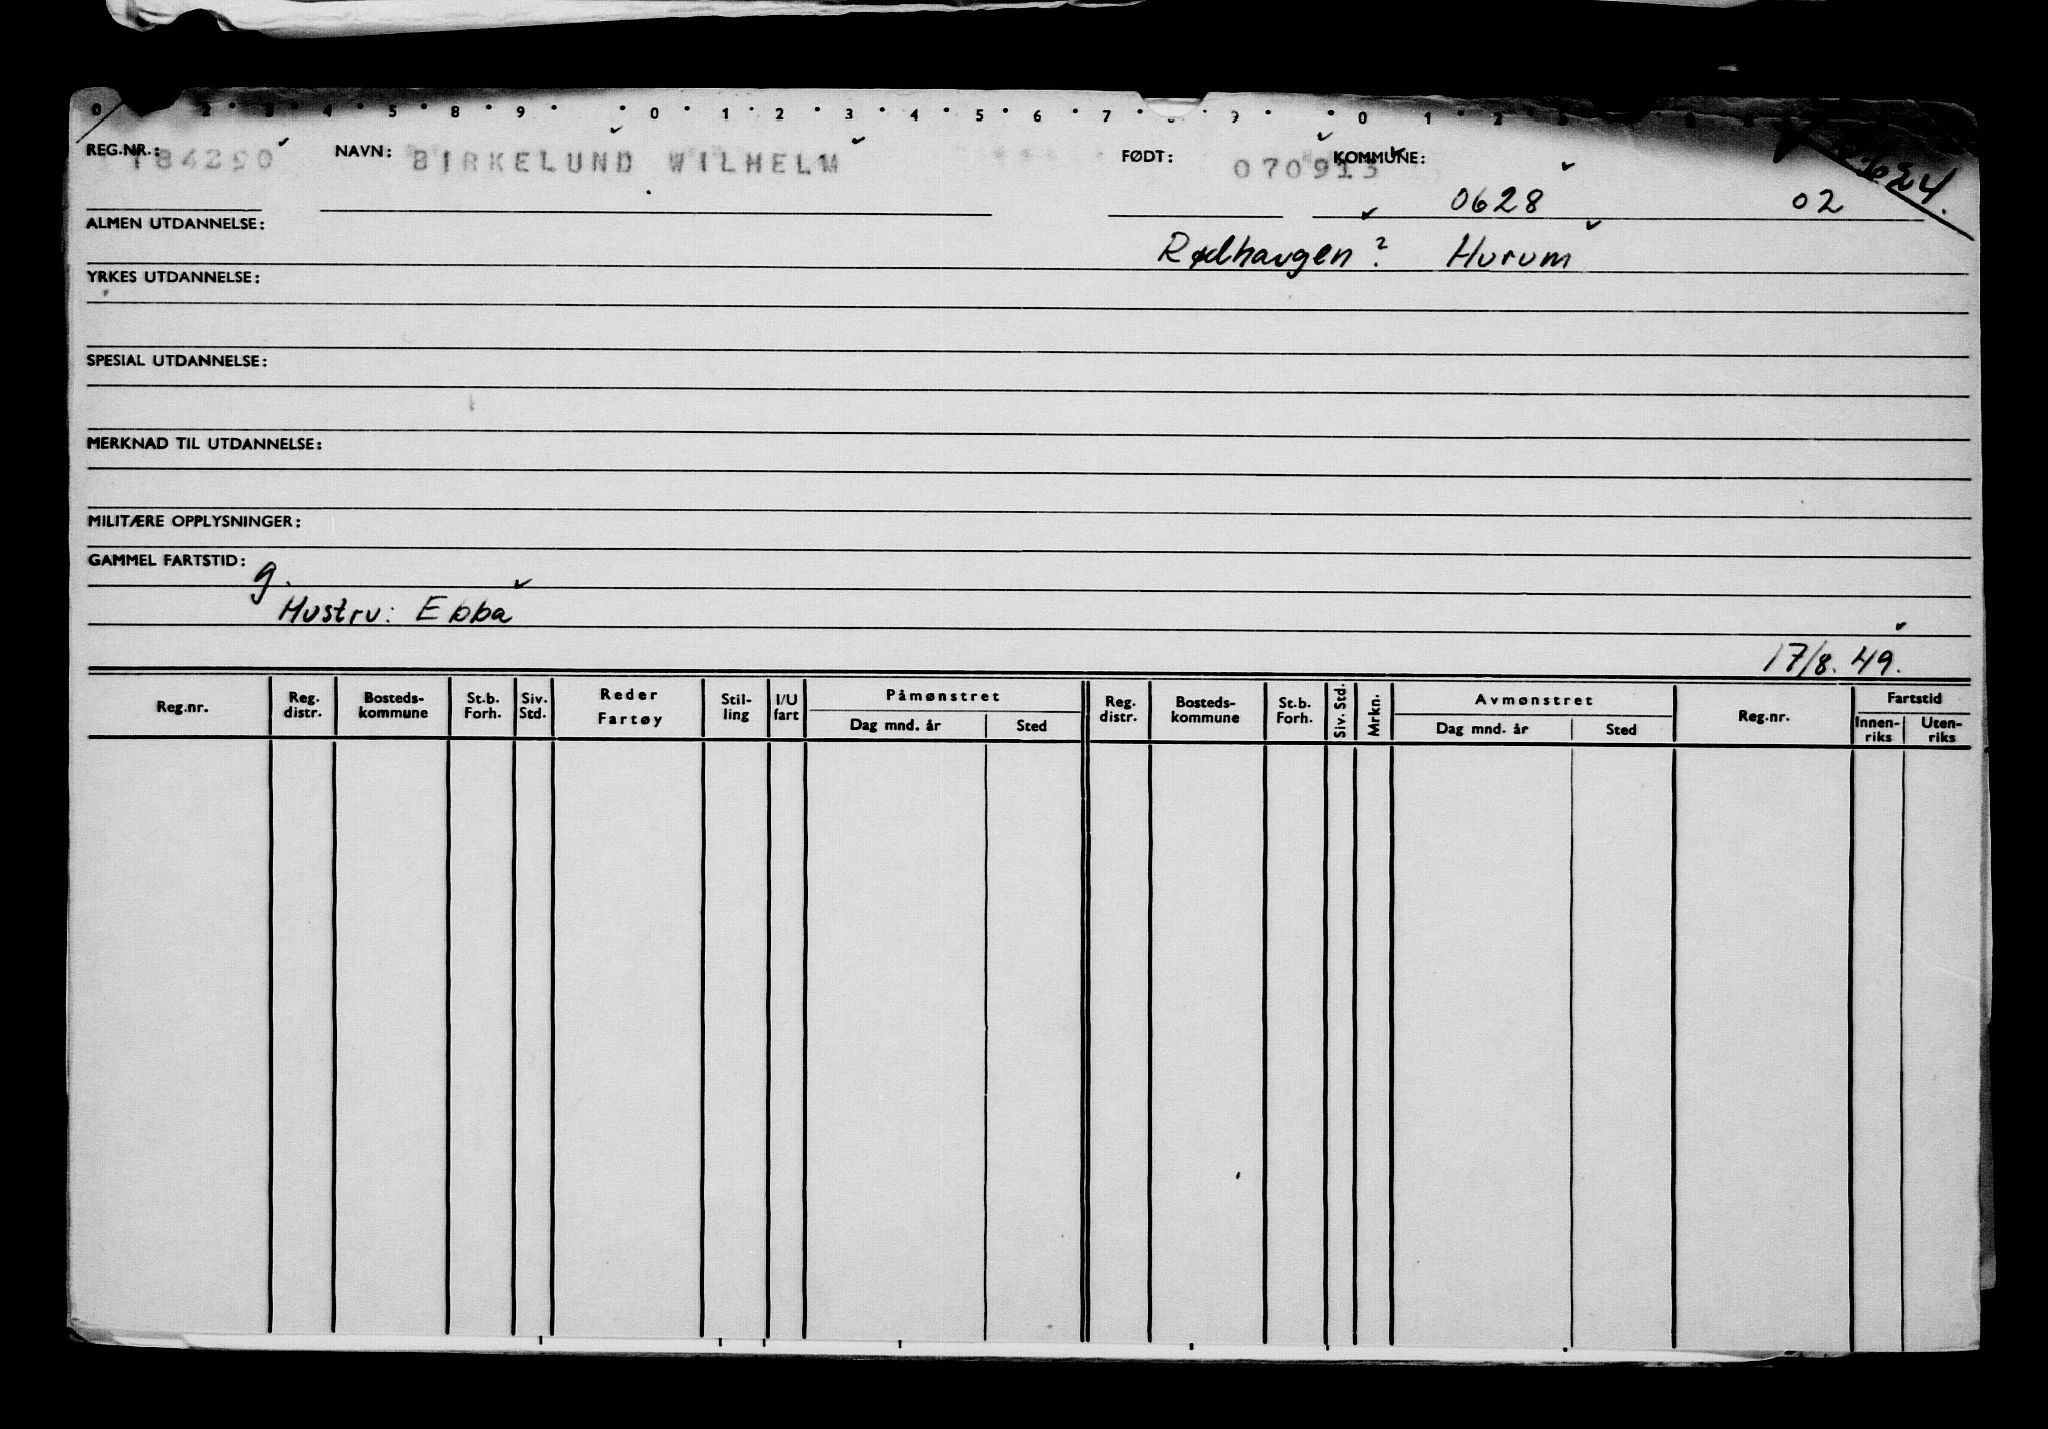 0 2 3 4 5 8 9 0 1 2 3 4 5 6 7 8 9 0 1 2
REG.NR.: 184290 NAVN: BIRKELUND WILHELM FØDT: 070913 KOMMUNE:
0628 02
ALMEN UTDANNELSE:
Rødhaugen? Hurum
YRKES UTDANNELSE:
SPESIAL UTDANNELSE:
MERKNAD TIL UTDANNELSE:
MILITÆRE OPPLYSNINGER:
GAMMEL FARTSTID:
g.
Hustru: Ebba
17/8. 49.
Reg.nr. Reg. distr. Bosteds-kommune St.b. Forh. Siv. Std. Reder Fartøy Stil-ling I/U fart Påmønstret Dag mnd. år Sted Reg. distr. Bosteds-kommune St.b. Forh. Siv. Std. Mrkn. Avmønstret Dag mnd. år Sted Reg.nr. Fartstid Innen-riks Uten-riks